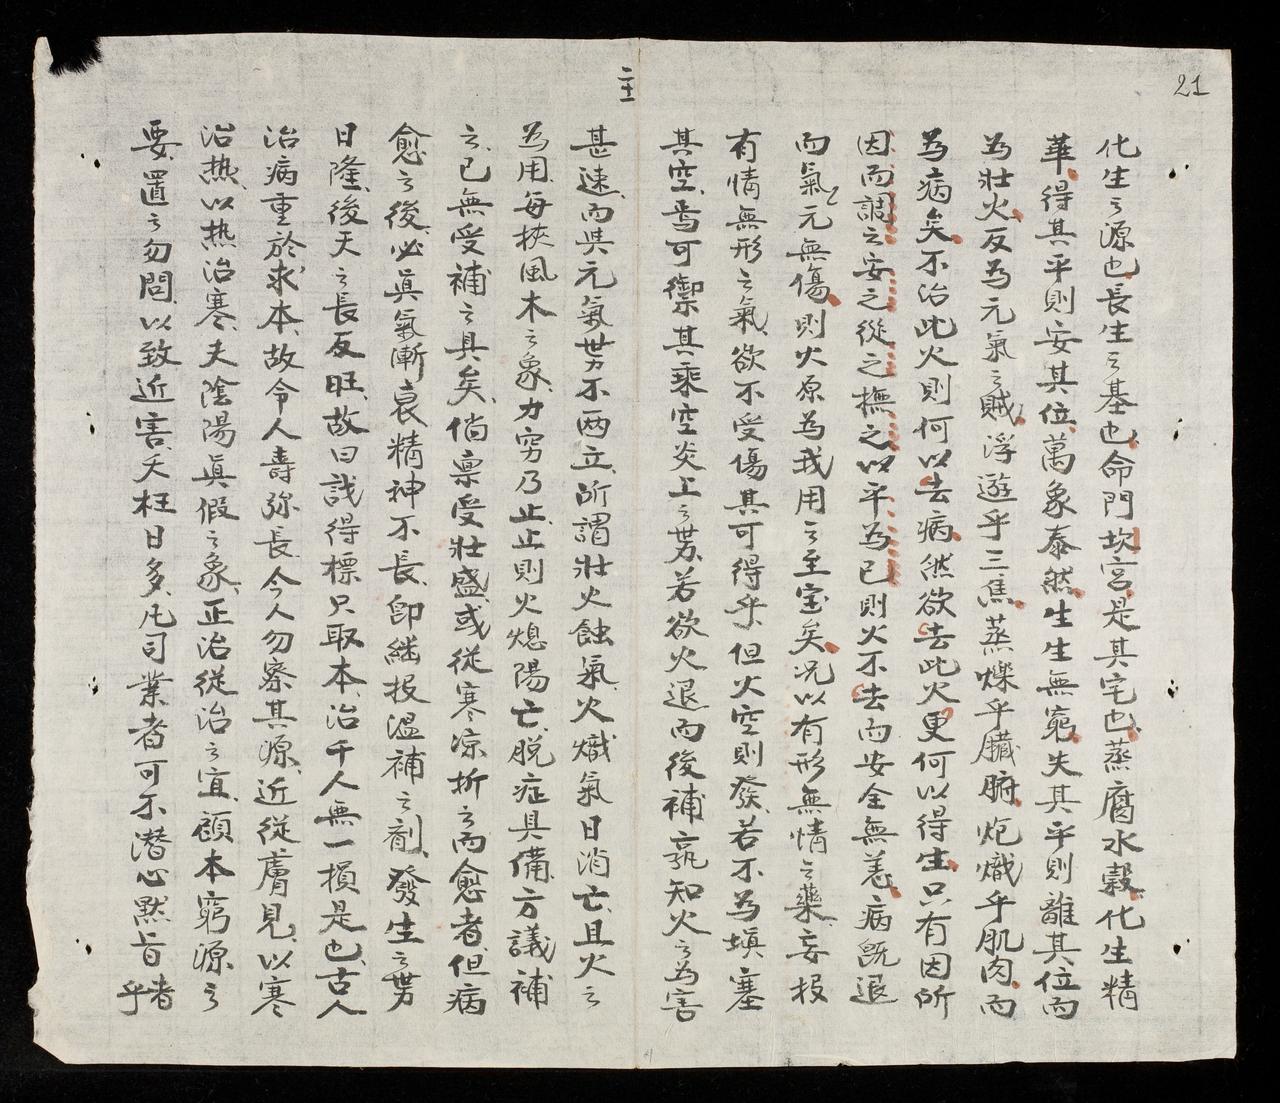 21
化生之源也長生之基也命門坎宮是其宅也蒸腐水穀化生精
華得其平則安其位萬象泰然生生無窮失其平則離其位而
為壯火反為元氣之賊浮遊乎三焦蒸爍乎臟腑炮熾乎肌肉而
為病矣不治此火則何以去病然欲去此火更何以得生只有因所
因而調之安之從之撫之以平為已則火不去而安全無恙病既退
而氣元無傷則火原為我用之至宝矣况以有形無情之藥妄投
有情無形之氣欲不受傷其可得乎但火空則發若不為填塞
其空焉可禦其乘空炎上之势若欲火退而後補孰知火之為害
二十一
甚速而與元氣势不两立所謂壯火蝕氣火熾氣日消亡且火之
為用每挾風木之象力穷乃止止則火熄陽亡脱症具備方議補
之已無受補之具矣倘禀受壯盛或從寒凉折之而愈者但病
愈之後必眞氣漸衰精神不長卽継投温補之剤發生之势
日隆後天之長反旺故曰識得標只取本治千人無一損是也古人
治病重於求本故令人壽弥長今人勿察其源近從膚見以寒
治热以热治寒夫陰陽眞假之象正治從治之宜顧本窮源之
要置之勿問以致近害夭枉日多凡司業者可不潜心黙旨者乎